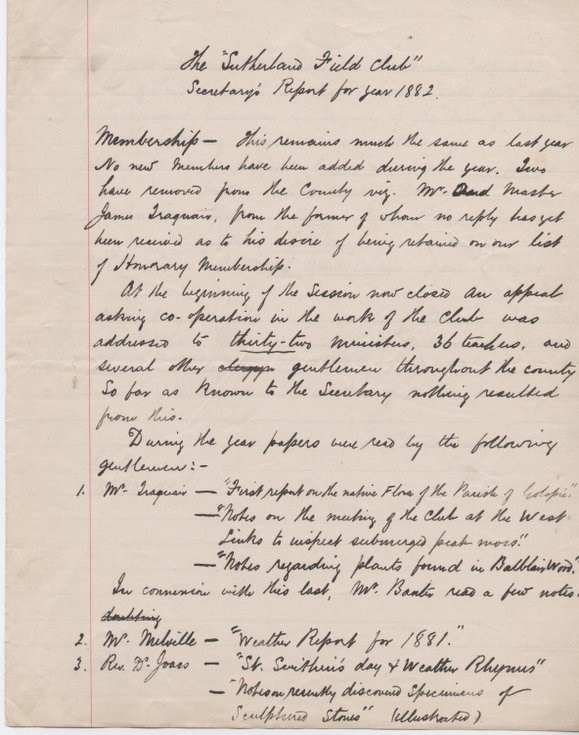 The "Sutherland Field Club"
Secretary's Report for year 1882.
Membership — This remains much the same as last year
No new Members have been added during the year. Two
have removed from the County viz. Mr. and Master
James Traquair, from the former of whom no reply has yet
been received as to his desire of being retained on our list
of Honorary Membership.
At the beginning of the Session now closed an appeal
asking co-operation in the work of the Club was
addressed to thirty-two ministers, 36 teachers, and
several other clergy gentlemen throughout the county
So far as known to the Secretary nothing resulted
from this.
During the year papers were read by the following
gentlemen:-
1. Mr. Traquair — "First report on the native Flora of the Parish of Golspie"
— "Notes on the meeting of the Club at the West
Links to inspect submerged peat moss."
— "Notes regarding plants found in Balblair Wood."
In connexion with this last, Mr. Baxter read a few notes.
2. Mr. Melville — "Weather Report for 1881."
3. Rev. Dr. Joass — "St. Swithin's day & Weather Rhymes"
— "Notes on recently discovered Specimens of
Sculptured Stones" (illustrated)